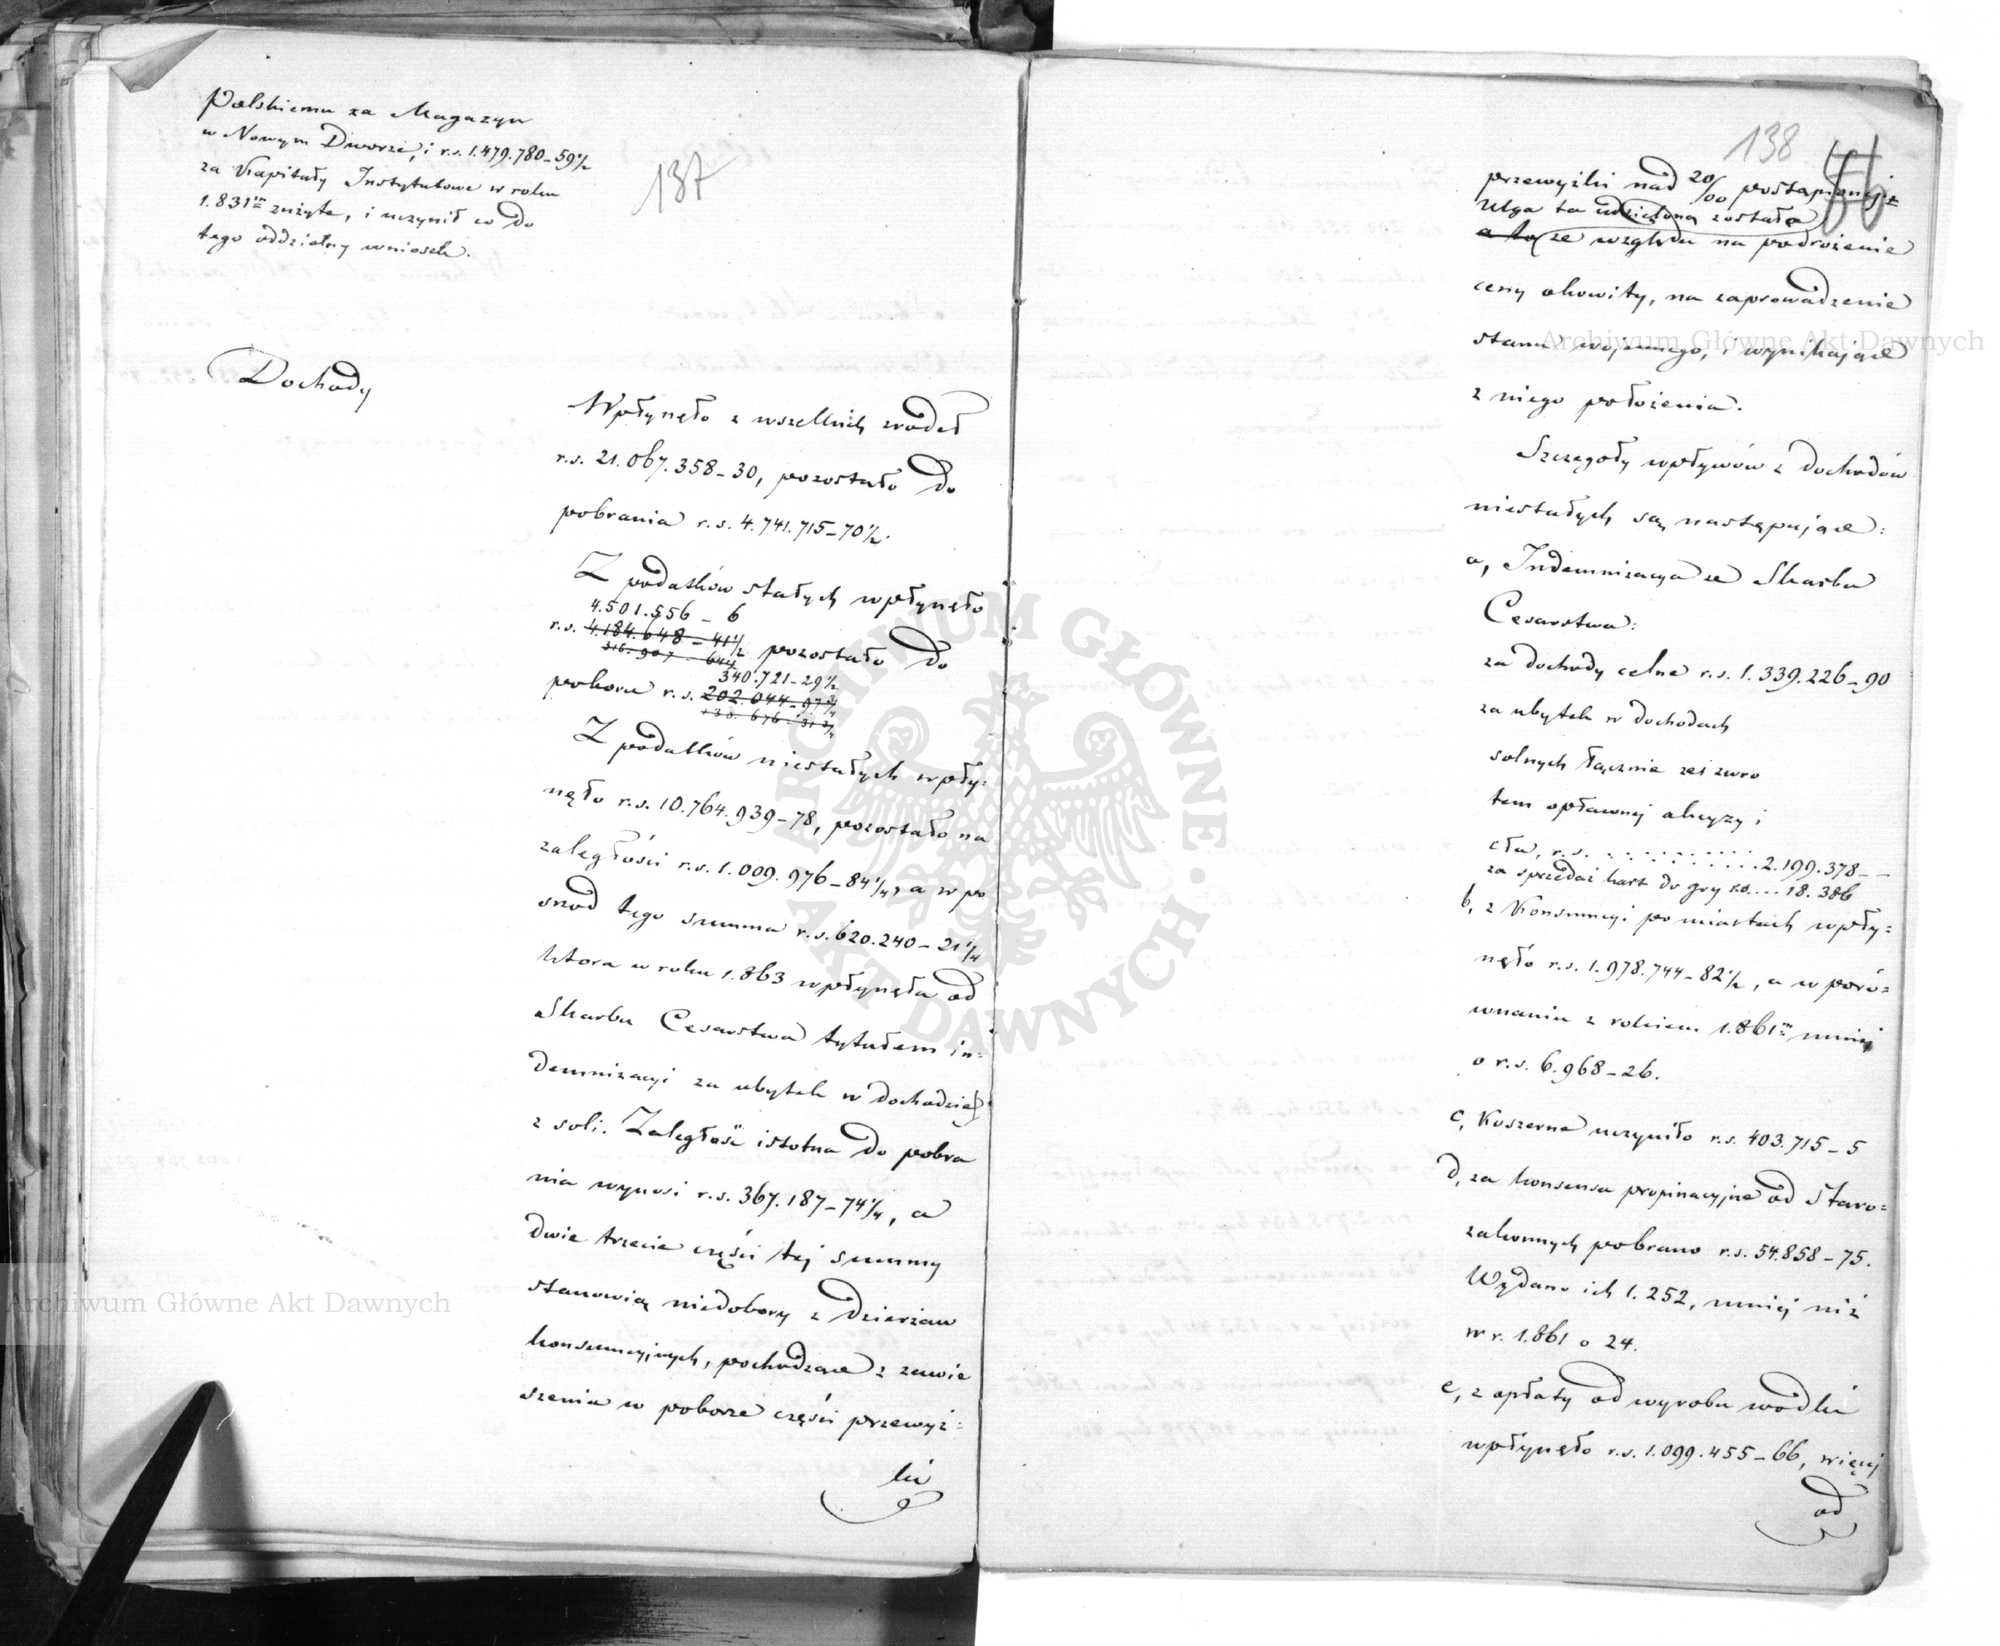 Polskiemu za Magazyn
w Nowym Dworze, i r.s. 1.479.780_59½
za Kapitały Instytutowe w roku
1.831ᵐ zużyte, i uczynił co do
tego oddzielny wniosek.
137
Dochody
Wpłynęło z wszelkich zrodeł
r.s. 21.067.358_30, pozostało do
pobrania r.s. 4.741.715_70½.
Z podatków stałych wpłynęło
4.501.556 _ 6
r.s. 4.184.648_41½ pozostało do
316.907 . 64½
340.721_29½
poboru r.s. 202.044_97¾
138.676.31¾
Z podatków niestałych wpły=
nęło r.s. 10.764.939_78, pozostało na
zaległości r.s. 1.009.976_84¼, a w po
srod tego summa r.s. 620.240_21¼
ktora w roku 1.863 wpłynęła od
Skarbu Cesarstwa tytułem in=
demnizacyi za ubytek w dochodzie
z soli. Zaległość istotna do pobra
nia wynosi r.s. 367.187_74¼, a
dwie trzecie części tej summy
stanowią niedobory z dzierżaw
konsumcyjnych, pochodzące z zawie
szenia w poborze części przewyż=
ki
138
przewyżki nad 20/00 postąpionej
Ulga ta udzieloną została
a to ze względu na podrożenie
ceny okowity, na zaprowadzenie
stanu wojennego, i wynikające
z niego położenia.
Szczegoły wpływów z dochodów
niestałych są następujące:
a, Indemnizacya ze Skarbu
Cesarstwa:
za dochody celne r.s. 1.339.226_90
za ubytek w dochodach
solnych łącznie ze zwro
tem opławnej akcyzy i
cła, r.s. . . . . . . . . . 2.199.378_ _
za sprzedaż kart do gry r.s. . . . 18.386
b, z Konsumcyi po miastach wpły=
nęło r.s. 1.978.744_82½, a w poró=
wnaniu z rokiem 1.861ᵐ mniej
o r.s. 6.968_26.
c, Koszerne uczyniło r.s. 403.715_5
d, za konsensa propinacyjne od Staro=
zakonnych pobrano r.s. 54.858_75.
Wydano ich 1.252, mniej niż
w r. 1.861 o 24.
e, z opłaty od wyrobu wódki
wpłynęło r.s. 1.099.455_66, więcej
od
Archiwum Główne Akt Dawnych
Archiwum Główne Akt Dawnych
ARCHIWUM GŁÓWNE • AKT DAWNYCH •